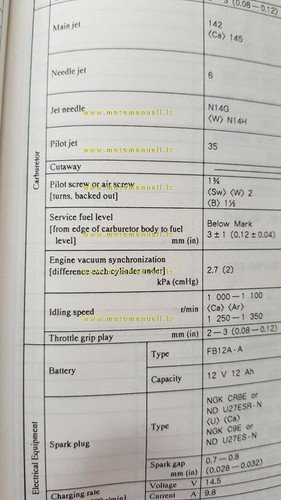 3 (0.08—0.12)
Main jet
142
⟨Ca⟩ 145
Needle jet
6
Jet needle
N14G
⟨W⟩ N14H
Pilot jet
35
Carburetor
Cutaway
Pilot screw or air screw
[turns, backed out]
1¾
⟨Sw⟩ ⟨W⟩ 2
⟨B⟩ 1½
Service fuel level
[from edge of carburetor body to fuel
level] mm (in)
Below Mark
3 ± 1 (0.12 ± 0.04)
Engine vacuum synchronization
[difference each cylinder under]
kPa (cmHg)
2.7 (2)
Idling speed r/min
1 000—1 100
⟨Ca⟩ ⟨Ar⟩
1 250—1 350
Throttle grip play mm (in)
2—3 (0.08—0.12)
Battery
Type
FB12A-A
Capacity
12 V 12 Ah
Electrical Equipment
Spark plug
Type
NGK CR9E or
ND U27ESR-N
⟨U⟩ ⟨Ca⟩
NGK C9E or
ND U27ES-N
Spark gap
mm (in)
0.7—0.8
(0.028—0.032)
Charging rate
Voltage V
14.5
Current A
9.8
www.motomanuali.it
www.motomanuali.it
www.motomanuali.it
www.motomanuali.it
www.motomanuali.it